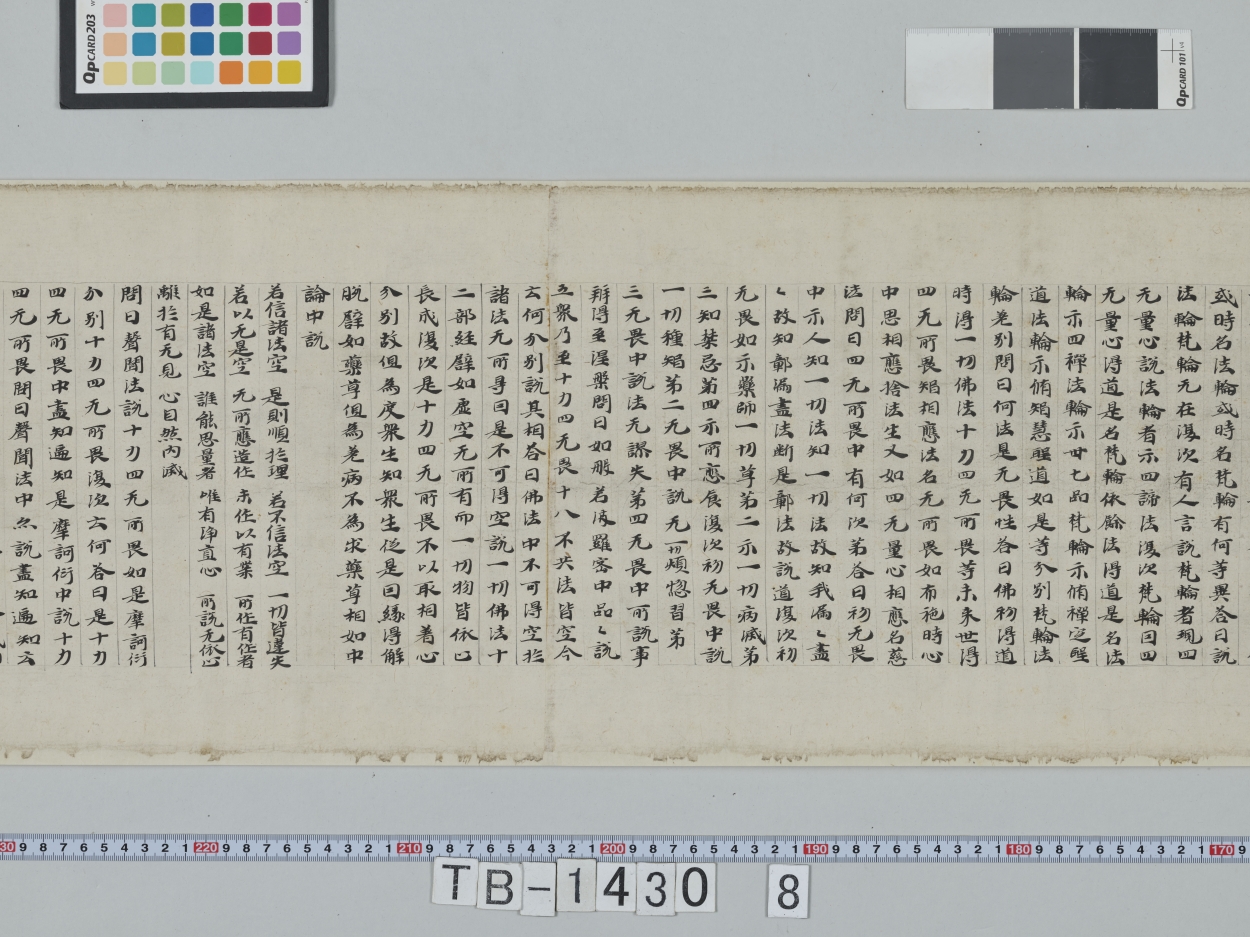 或時名法輪或時名梵輪有何等異答曰説
法輪梵輪无在復次有人言説梵輪者現四
无量心説法輪者示四諦法復次梵輪因四
无量心得道是名梵輪依餘法得道是名法
輪示四禪法輪示卅七品梵輪示脩禪定聖
道法輪示脩智慧聖道如是等分別梵輪法
輪差別問曰何法是无畏性答曰佛初得道
時得一切佛法十力四无所畏等未来世得
四无所畏智相應法名无所畏如布施時心
中思相應捨法生又如四无量心相應名慈
法問曰四无所畏中有何次第答曰初无畏
中示人知一切法知一切法故知我漏〻盡
〻故知鄣漏盡法斷是鄣法故説道復次初
无畏如示藥師一切草第二示一切病滅第
三知禁忌第四示所應食復次初无畏中説
一切種智第二无畏中説无一切煩惱習第
三无畏中説法无謬失第四无畏中所説事
辯得至涅槃問曰如般若波羅蜜中品〻説
五衆乃至十力四无畏十八不共法皆空今
云何分別説其相答曰佛法中不可得空於
諸法无所㝵因是不可得空説一切佛法十
二部経譬如虛空无所有而一切物皆依以
長成復次是十力四无所畏不以取相著心
分別故但為度衆生知衆生從是因縁得解
脱譬如藥草但為差病不為求藥草相如中
論中説
若信諸法空 是則順於理 若不信法空 一切皆違失
若以无是空 无所應造作 未作以有業 不作有作者
如是諸法空 誰能思量者 唯有淨直心 所説无依止
離於有无見 心自然内滅
問曰聲聞法説十力四无所畏如是摩訶衍
分別十力四无所畏復次云何答曰是十力
四无所畏中盡知遍知是摩訶衍中説十力
四无所畏問曰聲聞法中亦説盡知遍知云
QPCARD 203
QPCARD 101 v4
TB-1430 8